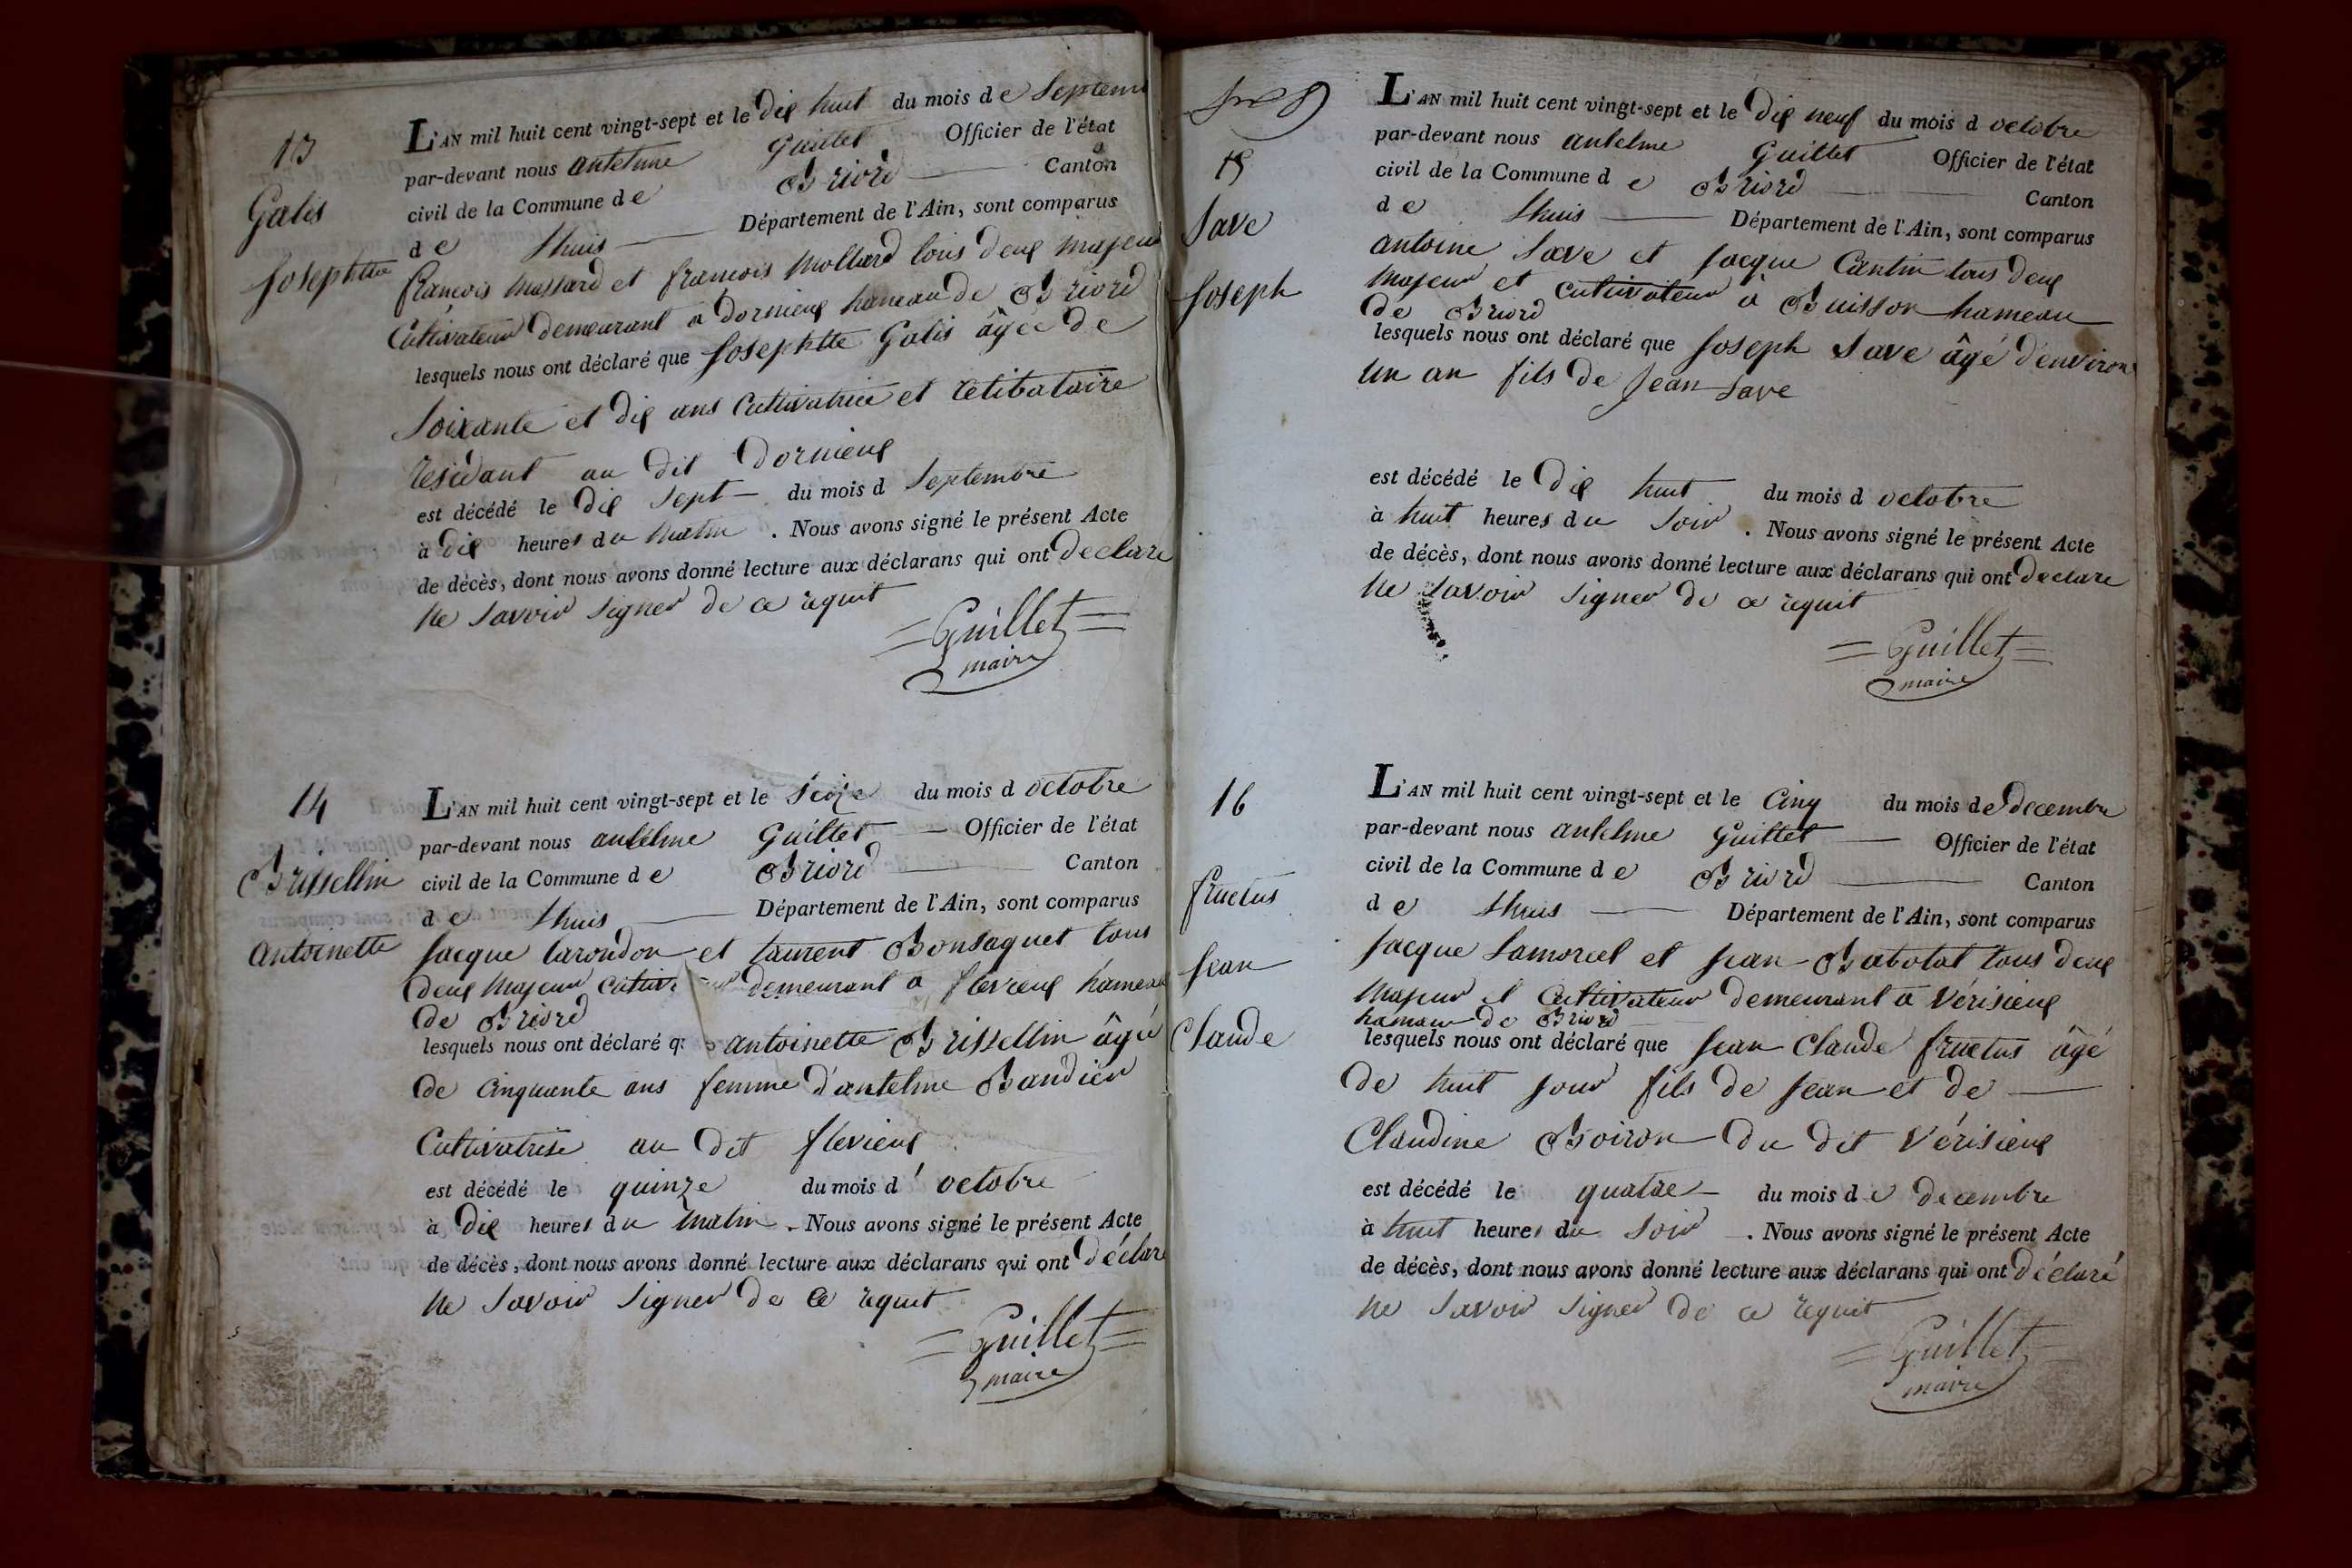 13
Galis
Josephtte
L'AN mil huit cent vingt-sept et le dix huit du mois de Septem
par-devant nous antelme Guillet Officier de l'état
civil de la Commune de Briord Canton
de Lhuis Département de l'Ain, sont comparus
françois massard et françois Mollard tous deux majeur
Cultivateur demeurant a Dornieux hameau de Briord
lesquels nous ont déclaré que Josephtte Galis âgée de
Soixante et dix ans Cultivatrice et Célibataire
résidant au dit Dornieux
est décédé le dix Sept du mois d Septembre
à dix heures du Matin . Nous avons signé le présent Acte
de décès, dont nous avons donné lecture aux déclarans qui ont declare
ne Savoir Signer de ce requit
Guillet
maire
14
Brissellin
antoinette
L'AN mil huit cent vingt-sept et le Seize du mois d octobre
par-devant nous antelme Guillet Officier de l'état
civil de la Commune de Briord Canton
de Lhuis Département de l'Ain, sont comparus
Jacque larondon et laurent Bonsaquet tous
deux Majeur demeurant a flévieux hameau
de Briord
lesquels nous ont déclaré q antoinette Brissellin âgée
de cinquante ans femme d'antelme Baudier
Cultivatrise au dit flevieux
est décédé le quinze du mois d' octobre
à dix heures du Matin . Nous avons signé le présent Acte
de décès, dont nous avons donné lecture aux déclarans qui ont déclare
ne Savoir Signer de Ce requit
Guillet
maire
15
Save
Joseph
L'AN mil huit cent vingt-sept et le dix neuf du mois d octobre
par-devant nous antelme Guillet Officier de l'état
civil de la Commune de Briord Canton
de Lhuis Département de l'Ain, sont comparus
antoine Save et Jacque Cantin tous deux
majeur et cultivateur à Buisson hameau
de Briord
lesquels nous ont déclaré que Joseph Save âgé d'environ
un an fils de Jean Save
est décédé le dix huit du mois d octobre
à huit heures du Soir . Nous avons signé le présent Acte
de décès, dont nous avons donné lecture aux déclarans qui ont declare
ne Savoir Signer de ce requit
Guillet
maire
16
fructus
Jean
Claude
L'AN mil huit cent vingt-sept et le Cinq du mois de decembre
par-devant nous antelme Guillet Officier de l'état
civil de la Commune de Briord Canton
de Lhuis Département de l'Ain, sont comparus
Jacque Lamorcel et Jean Babolat tous deux
majeur et Cultivateur demeurant a Vérisieux
hameau de Briord
lesquels nous ont déclaré que Jean Claude fructus âgé
de huit jour fils de Jean et de
Claudine Boiron du dit Vérisieux
est décédé le quatre du mois de decembre
à huit heures du Soir . Nous avons signé le présent Acte
de décès, dont nous avons donné lecture aux déclarans qui ont déclaré
ne Savoir Signer de ce requit
Guillet
maire